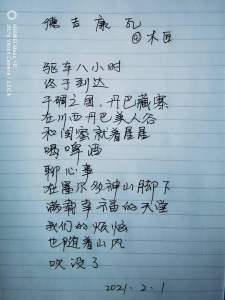 德吉康瓦
@木匠
驱车八小时
终于到达
千碉之国，丹巴藏寨
在川西丹巴美人谷
和闺蜜就着星星
喝啤酒
聊心事
在墨尔多神山脚下
满载幸福的天堂
我们的烦恼
也随着山风
吹没了
2021.2.1